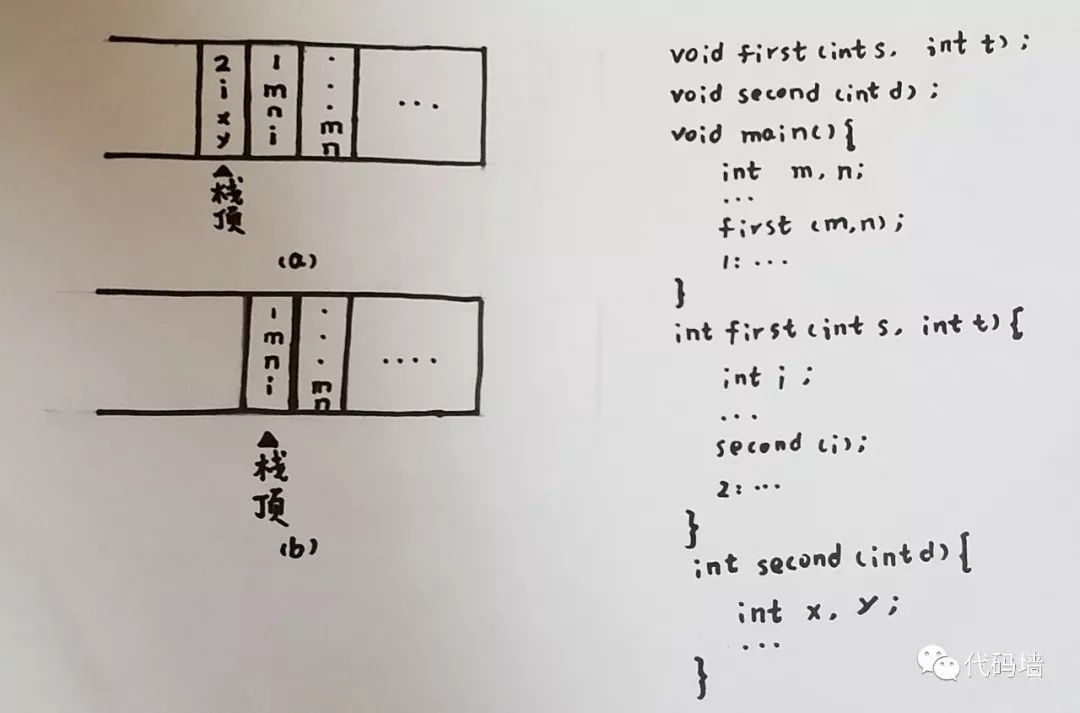 2ixy
1mni
...mn
...
栈顶
(a)
1mni
...mn
....
栈顶
(b)
void first (int s, int t);
void second (int d);
void main(){
int m, n;
...
first (m,n);
1: ...
}
int first (int s, int t){
int i;
...
second (i);
2: ...
}
int second (int d){
int x, y;
...
}
代码墙